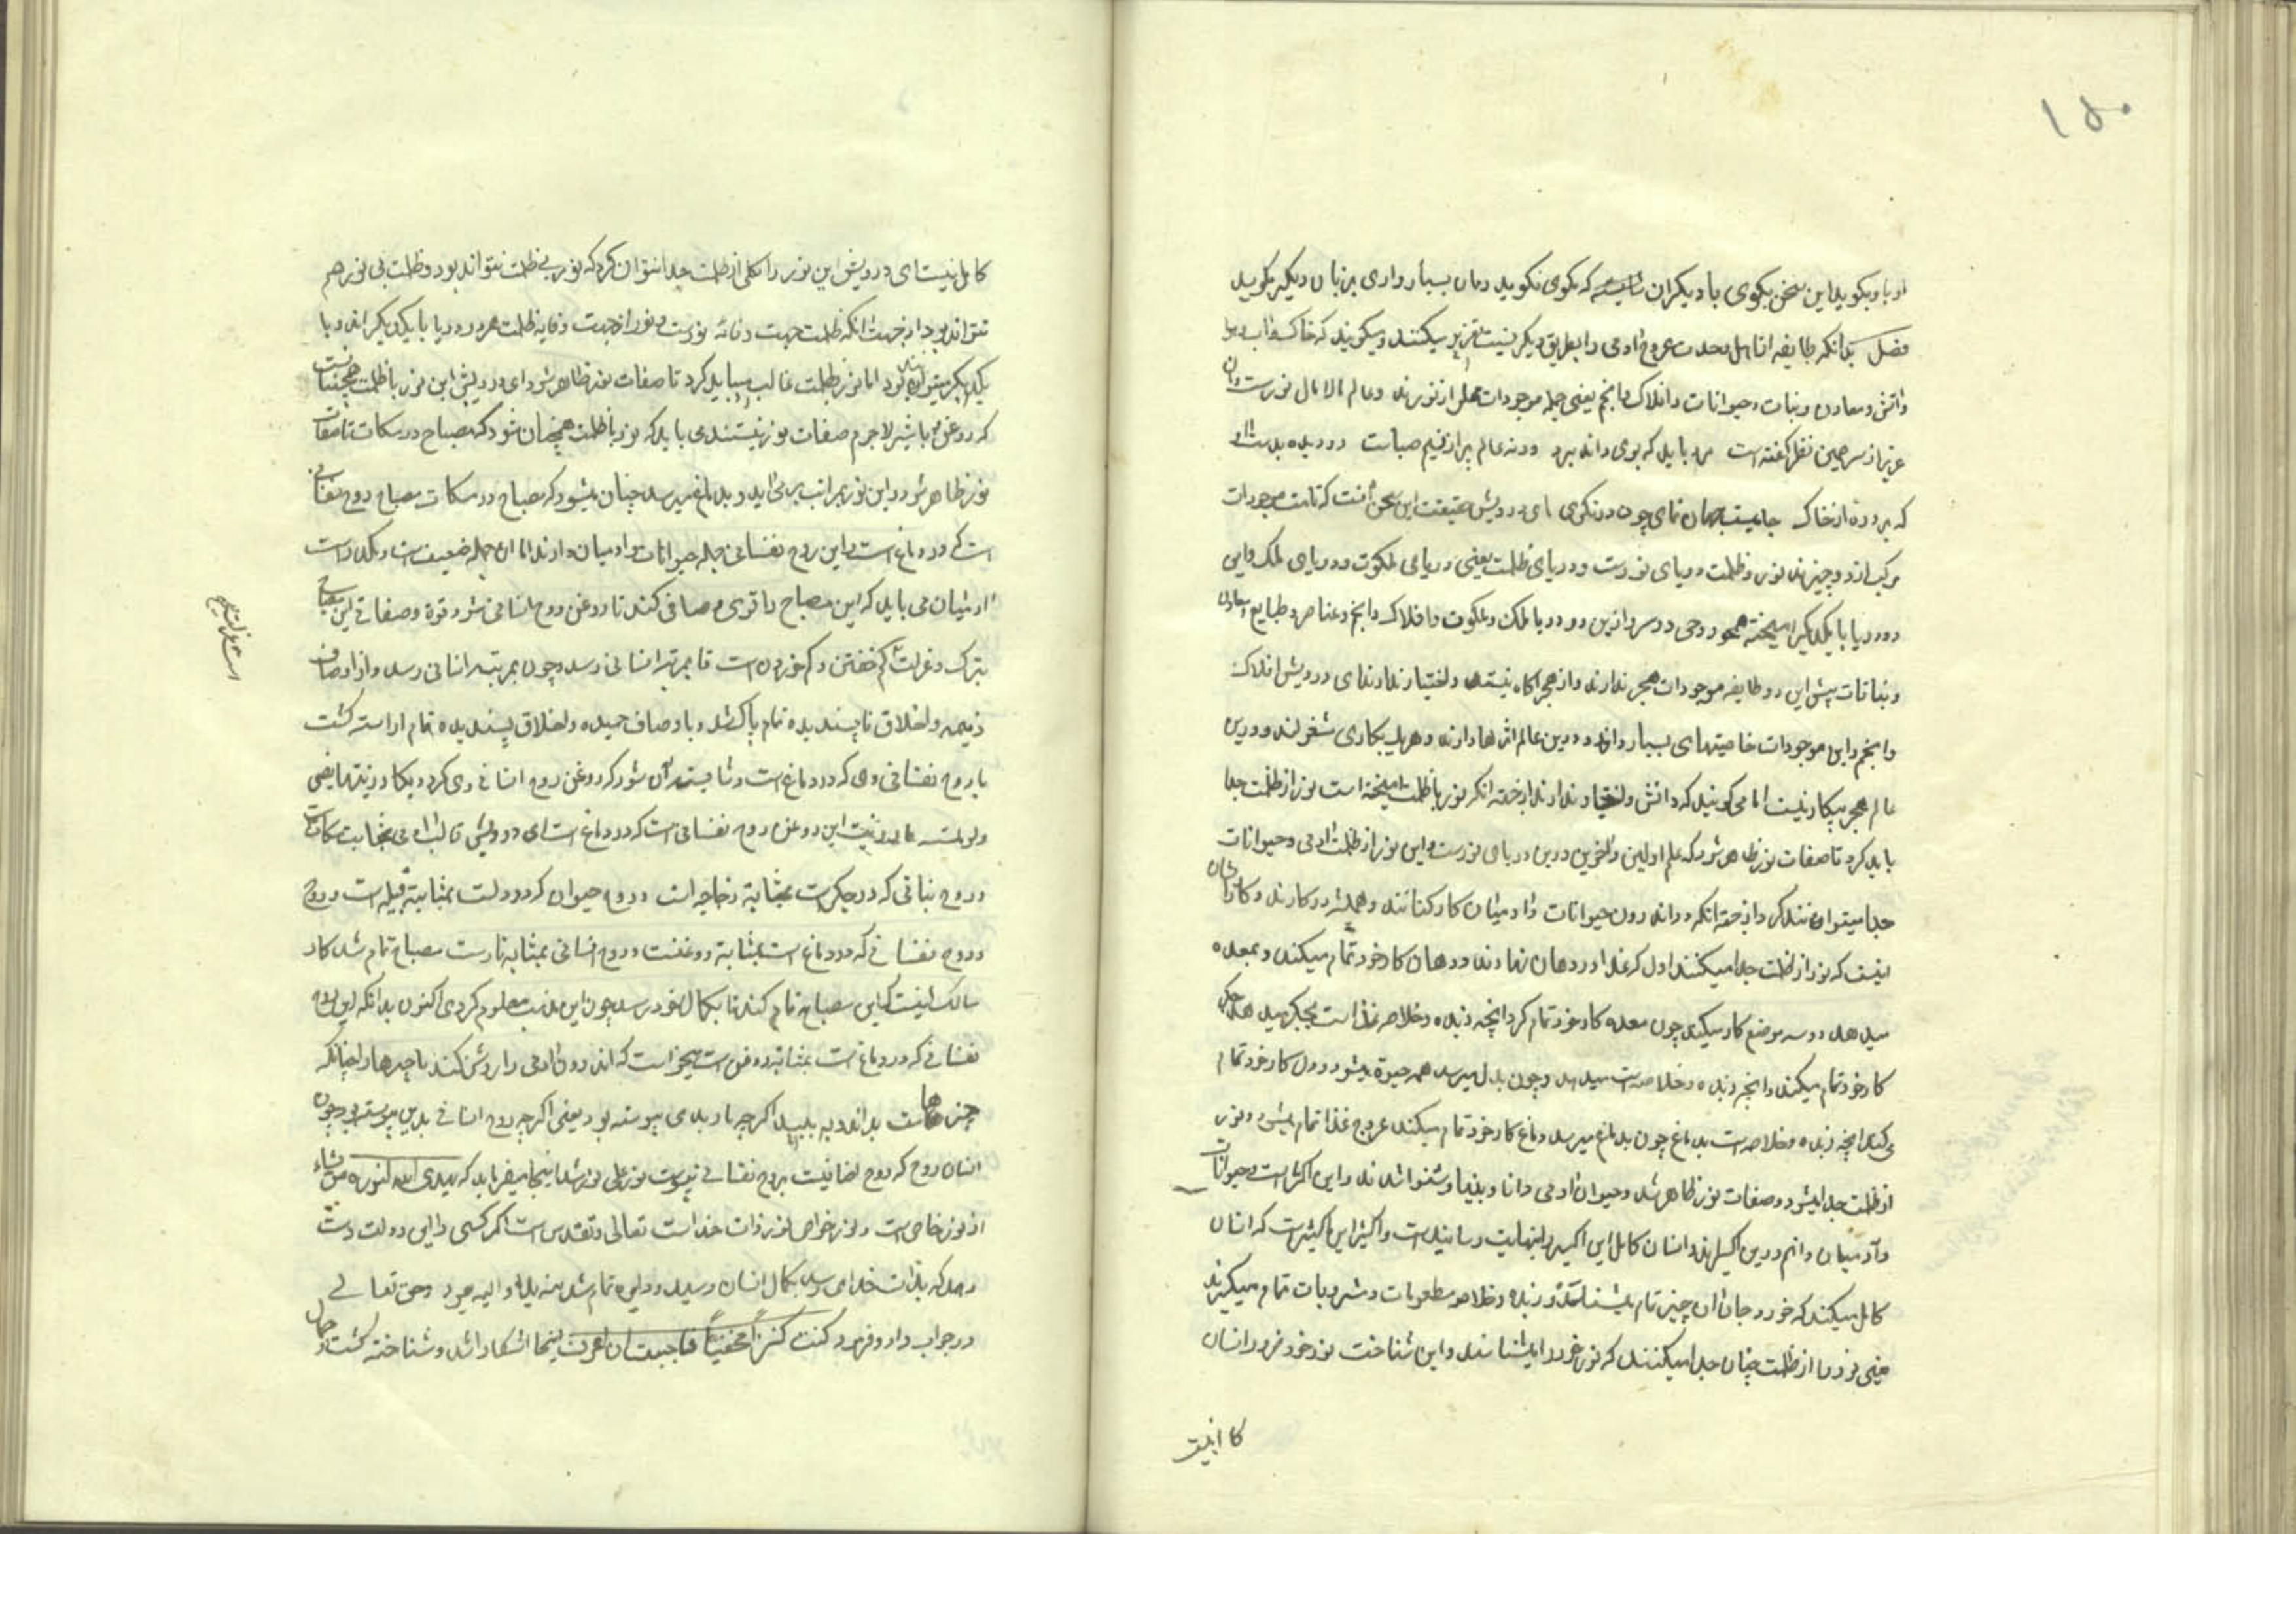 ۱۵۰
او با او بگوید این سخن بگوی با دیگران شایسته که بگوی نگوید و مان بسیار داری بر زبان دیگر بگوید
فصل بدانکه طایفه از اهل وحدت عروج آدمی را بطریق دیگر نسبت تقریر میکنند و میگویند که خاک و آب و هوا
و آتش و معادن و نبات و حیوانات و افلاک و انجم یعنی جمله موجودات مملو از نورند و عالم مالامال نورست و آن
عزیز از سر همین نظر گفته است مرد باید که بوی داند برد ورنه عالم پر از نسیم صباست دو دیده بدست آر
که هر ذره از خاک جامیست جهان نمای چون درنگری ای درویش حقیقت این سخن آنست که تمامت موجودات
مرکب از دو چیزند نور و ظلمت دریای نورست و دریای ظلمت یعنی دریای ملکوت و دریای ملک و این
دو دریا با یکدیگر آمیخته همچو روحی در سر ازین دو دریا ملک و ملکوت و افلاک و انجم و عناصر و طبایع و معادن
و نباتات پیش این دو طایفه موجودات هجر ندارند و از هجر آگاه نیستند و اختیار ندارند ای درویش افلاک
و انجم و این موجودات خاصیتهای بسیار دارند و درین عالم اثرها دارند و هر یک بکاری مشغولند و درین
عالم هجر بیکار نیست اما می گویند که دانش و اختیار ندارند از جهة انکه نور با ظلمت آمیخته است نور از ظلمت جدا
باید کرد تا صفات نور ظاهر شود که علم اولین و آخرین درین دریای نورست و این نور از ظلمت آدمی و حیوانات
جدا میتوانند کرد از جهة انکه در اندرون حیوانات و آدمیان کارکنانند و همیشه در کارند و کار ایشان
اینست که نور از ظلمت جدا میکنند اول که غذا در دهان نهادند دهان کار خود تمام میکند و بمعده
میدهد در سه موضع کار میکند چون معده کار خود تمام کرد آنچه زبده و خلاصه غذا است بجگر میدهد جگر
کار خود تمام میکند و آنچه زبده و خلاصه است میدهد و چون بدل میرسد همه حیوة میشود و دل کار خود تمام
می کند آنچه زبده و خلاصه است بدماغ چون بدماغ میرسد دماغ کار خود تمام میکند عروج غذا تمام میشود و نور
از ظلمت جدا میشود و صفات نور ظاهر شد و حیوان و آدمی دانا و بینا و شنوا شدند و این اکسیر است و حیوانات
و آدمیان دایم درین اکسیرند و انسان کامل این اکسیر را بنهایت رسانیده است و اکسیر این اکسیرست که انسان
کامل میکند که خورد جان آن چیز تمام میستاند و زبده و خلاصه مطعومات و مشروبات تمام میگیرند
یعنی نور را از ظلمت چنان جدا میکنند که نور خود را میشناسد و این شناخت نور خود خود را انسان
کامل نیست ای درویش این نور را بکلی از ظلمت جدا نتوان کرد که نور بی ظلمت نتواند بود و ظلمت بی نور هم
نتواند بود از جهت انکه ظلمت جهت وقایه نورست و نور از جهت وقایه ظلمت هر دو دریا با یکدیگراند و با
یکدیگر میتوانند بود اما نور بر ظلمت غالب میباید کرد تا صفات نور ظاهر شود ای درویش این نور با ظلمت همچنانست
که روغن با شیر لاجرم صفات نور نیستند می باید که نور با ظلمت همچنان شود که مصباح در مشکات تا صفات
نور ظاهر شود و این نور بمراتب بر می آید و بدماغ میرسد چنان میشود که مصباح در مشکات مصباح روح نفسانی
است که در دماغ است و این روح نفسانی جمله حیوانات و آدمیان دارند اما آن جمله ضعیف است و مکدر است
آدمیان می باید که این مصباح را قوی و صافی کنند تا روغن روح انسانی شود و قوة و صفای این مصباح
بترک و عزلت و کم خفتن و کم خوردن است تا بمرتبه انسانی رسد و چون بمرتبه انسانی رسد و از اوصاف
ذمیمه و اخلاق ناپسندیده تمام پاک شد و باوصاف حمیده و اخلاق پسندیده تمام آراسته گشت
با روح نفسانی وی که در دماغ است شایسته آن شود که روغن روح انسانی وی گردد یکاد زیتها یضیء
ولو لم تمسسه نار اینست این روغن روح نفسانی است که در دماغ است ای درویش قالب آدمی بمثابت مشکات است
و روح نباتی که در جگرست بمثابة زجاجه است و روح حیوانی که در دلست بمثابة فتیله است و روح
و روح نفسانی که در دماغ است بمثابة روغنست و روح انسانی بمثابة نارست مصباح تمام شد کار
سالک اینست که این مصباح تمام کند تا بکمال خود رسد چون این مراتب معلوم کردی اکنون بدانکه این روح
نفسانی که در دماغ است بمثابة روغن است چیزی است که اندرون آدمی را روشن کند تا چیزها را چنانکه
چیزهاست بداند و به بیند اگر چه بار بدی پیوسته بود یعنی اگر چه روح انسانی بدین پیوسته بود چون
انسان روح که روح اضافیست بروح نفسانی پیوست نور علی نور شد اینجا میفرماید که یهدی الله لنوره من یشاء
از نور خاص است و نور خواص نور ذات خداست تعالی و تقدس است اگر کسی را این دولت دست
دهد که بذات خدای رسد بکمال انسان رسید و دایره تمام شد منه بدأ و الیه یعود و حق تعالی
در جواب داود فرمود کنت کنزا مخفیا فاحببت ان اعرف اینجا آشکارا شد و شناخته گشت